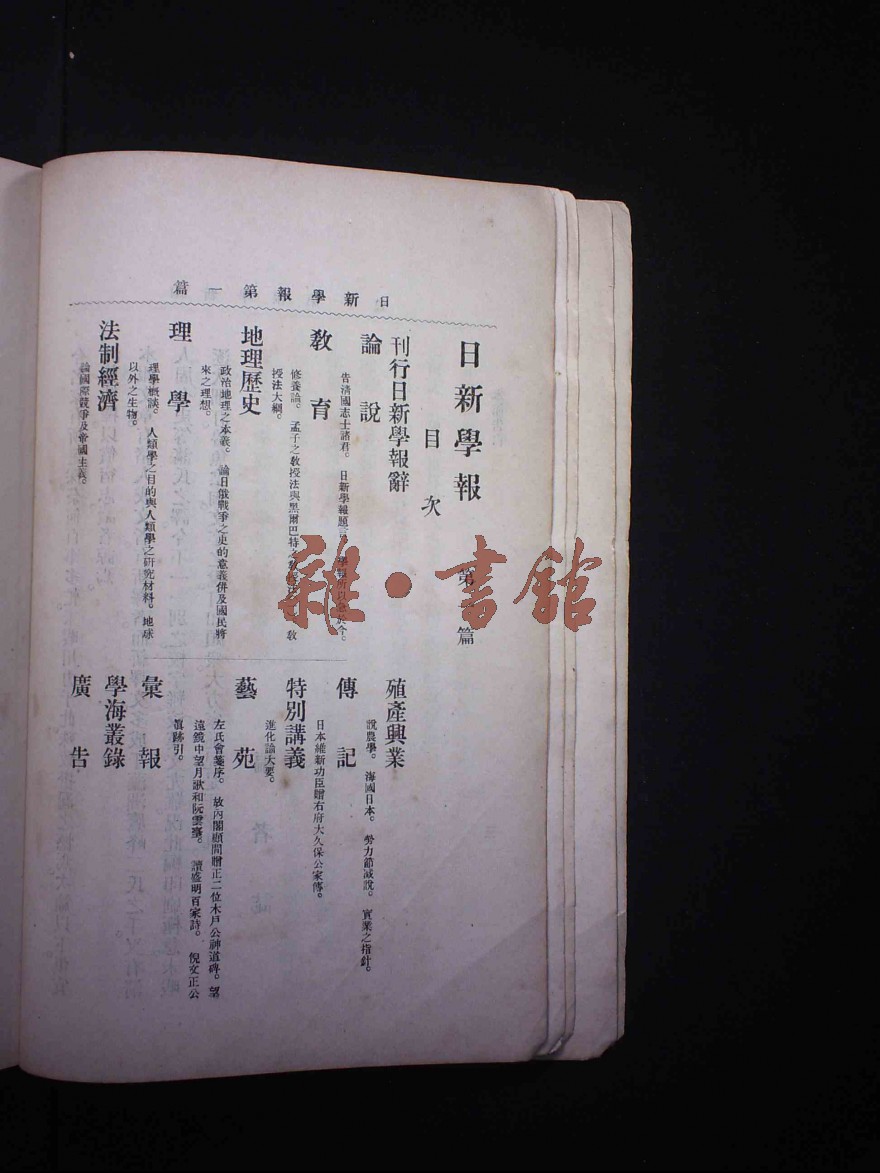 日新學報第一篇
日新學報 第一篇
目次
刊行日新學報辭
論說
告淸國志士諸君。 日新學報題言。 學報所以急於今。
敎育
修養論。 孟子之敎授法與黑爾巴特之敎授法。 敎
授法大綱。
地理歷史
政治地理之本義。 論日俄戰爭之史的意義倂及國民將
來之理想。
理學
理學槪談。 人類學之目的與人類學之研究材料。 地球
以外之生物。
法制經濟
論國際競爭及帝國主義。
殖產興業
說農學。 海國日本。 勞力節減說。 實業之指針。
傳記
日本維新功臣贈右府大久保公家傳。
特別講義
進化論大要。
藝苑
左氏會箋序。 故內閣顧問贈正二位木戶公神道碑。 望
遠鏡中望月歌和阮雲臺。 讀盛明百家詩。 倪文正公
眞跡引。
彙報
學海叢錄
廣告
雜·書館